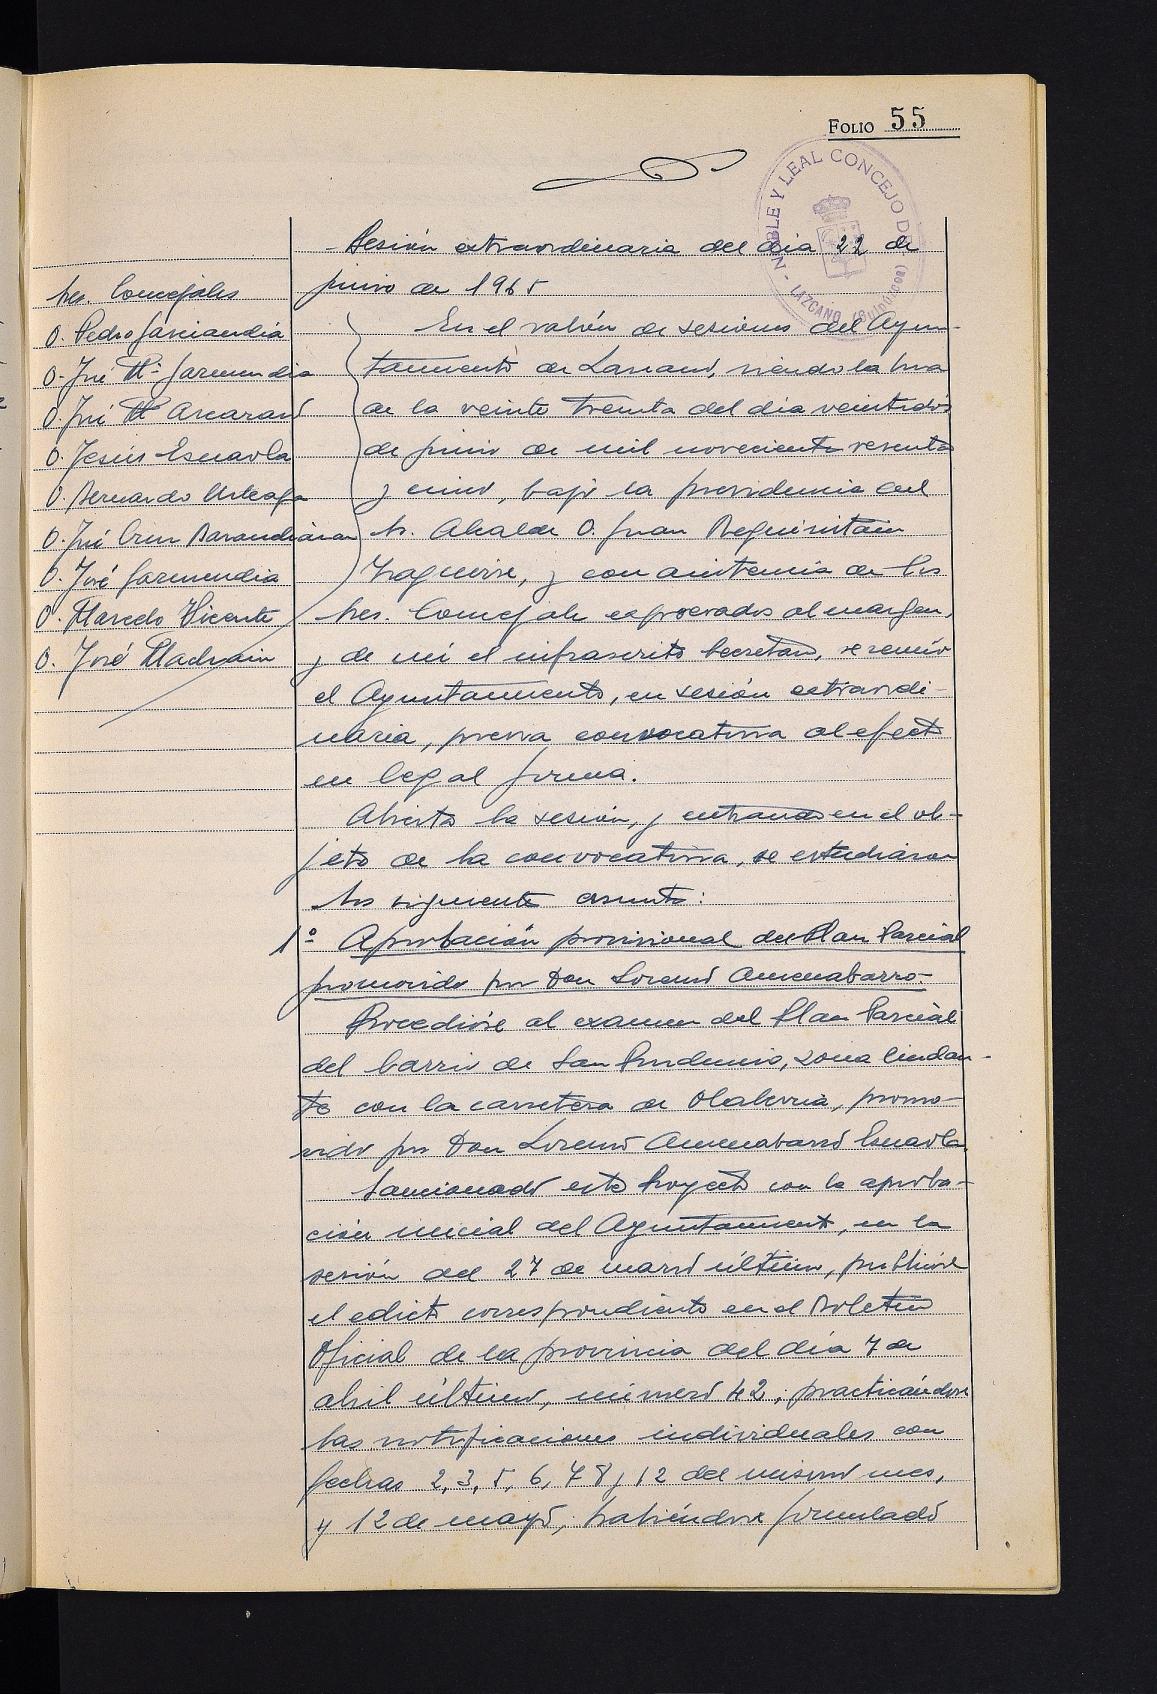 FOLIO 55
NOBLE Y LEAL CONCEJO DE
LAZCANO (Guipúzcoa)
Sesión extraordinaria del dia 22 de
junio de 1965
Sres. Concejales
D. Pedro Garciandia
D. José Mª Garmendia
D. José Mª Ascarasó
D. Jesús Esnaola
D. Bernardo Urteaga
D. José Cruz Barandiaran
D. José Garmendia
D. Marcelo Vicente
D. José Maduain
En el salón de sesiones del Ayun-
tamiento de Lazcano, siendo la hora
de la veinte treinta del dia veintidós
de junio de mil novecientos sesenta
y cinco, bajo la presidencia del
Sr. Alcalde D. Juan Beguiristain
Izaguirre, y con asistencia de los
Sres. Concejales expresados al margen,
y de mí el infrascrito Secretario, se reunió
el Ayuntamiento, en sesión extraordi-
naria, previa convocatoria al efecto
en legal forma.
Abierta la sesión, y entrando en el ob-
jeto de la convocatoria, se estudiaron
los siguientes asuntos:
1º Aprobación provisional del Plan Parcial
promovido por Don Lorenzo Amenabarro.
Procedióse al examen del Plan Parcial
del barrio de San Prudencio, zona lindan-
te con la carretera de Olaberria, promo-
vido por Don Lorenzo Amenabarro Esnaola.
Sancionado este Proyecto con la aproba-
ción inicial del Ayuntamiento, en la
sesión del 27 de marzo último, publicóse
el edicto correspondiente en el Boletín
Oficial de la provincia del día 7 de
abril último, número 42, practicándose
las notificaciones individuales con
fechas 2, 3, 5, 6, 7 8 y 12 del mismo mes,
y 12 de mayo, habiéndose formulado